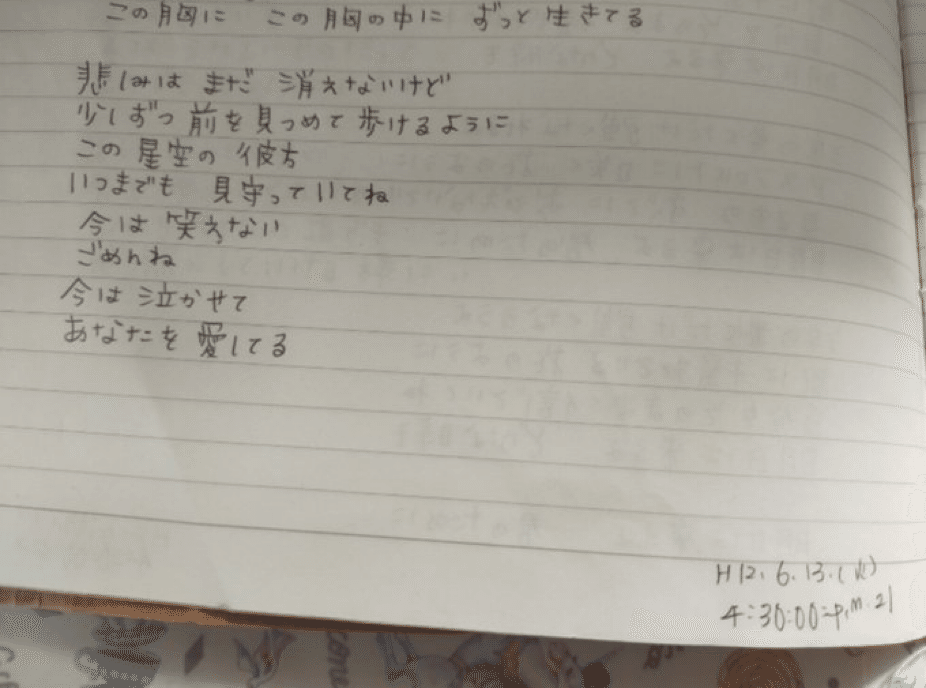 この胸に この胸の中に ずっと生きてる
悲しみは まだ 消えないけど
少しずつ 前を見つめて 歩けるように
この 星空の 彼方
いつまでも 見守っていてね
今は 笑えない
ごめんね
今は 泣かせて
あなたを 愛してる
H12.6.13.(火)
4:30:00=P.M.21